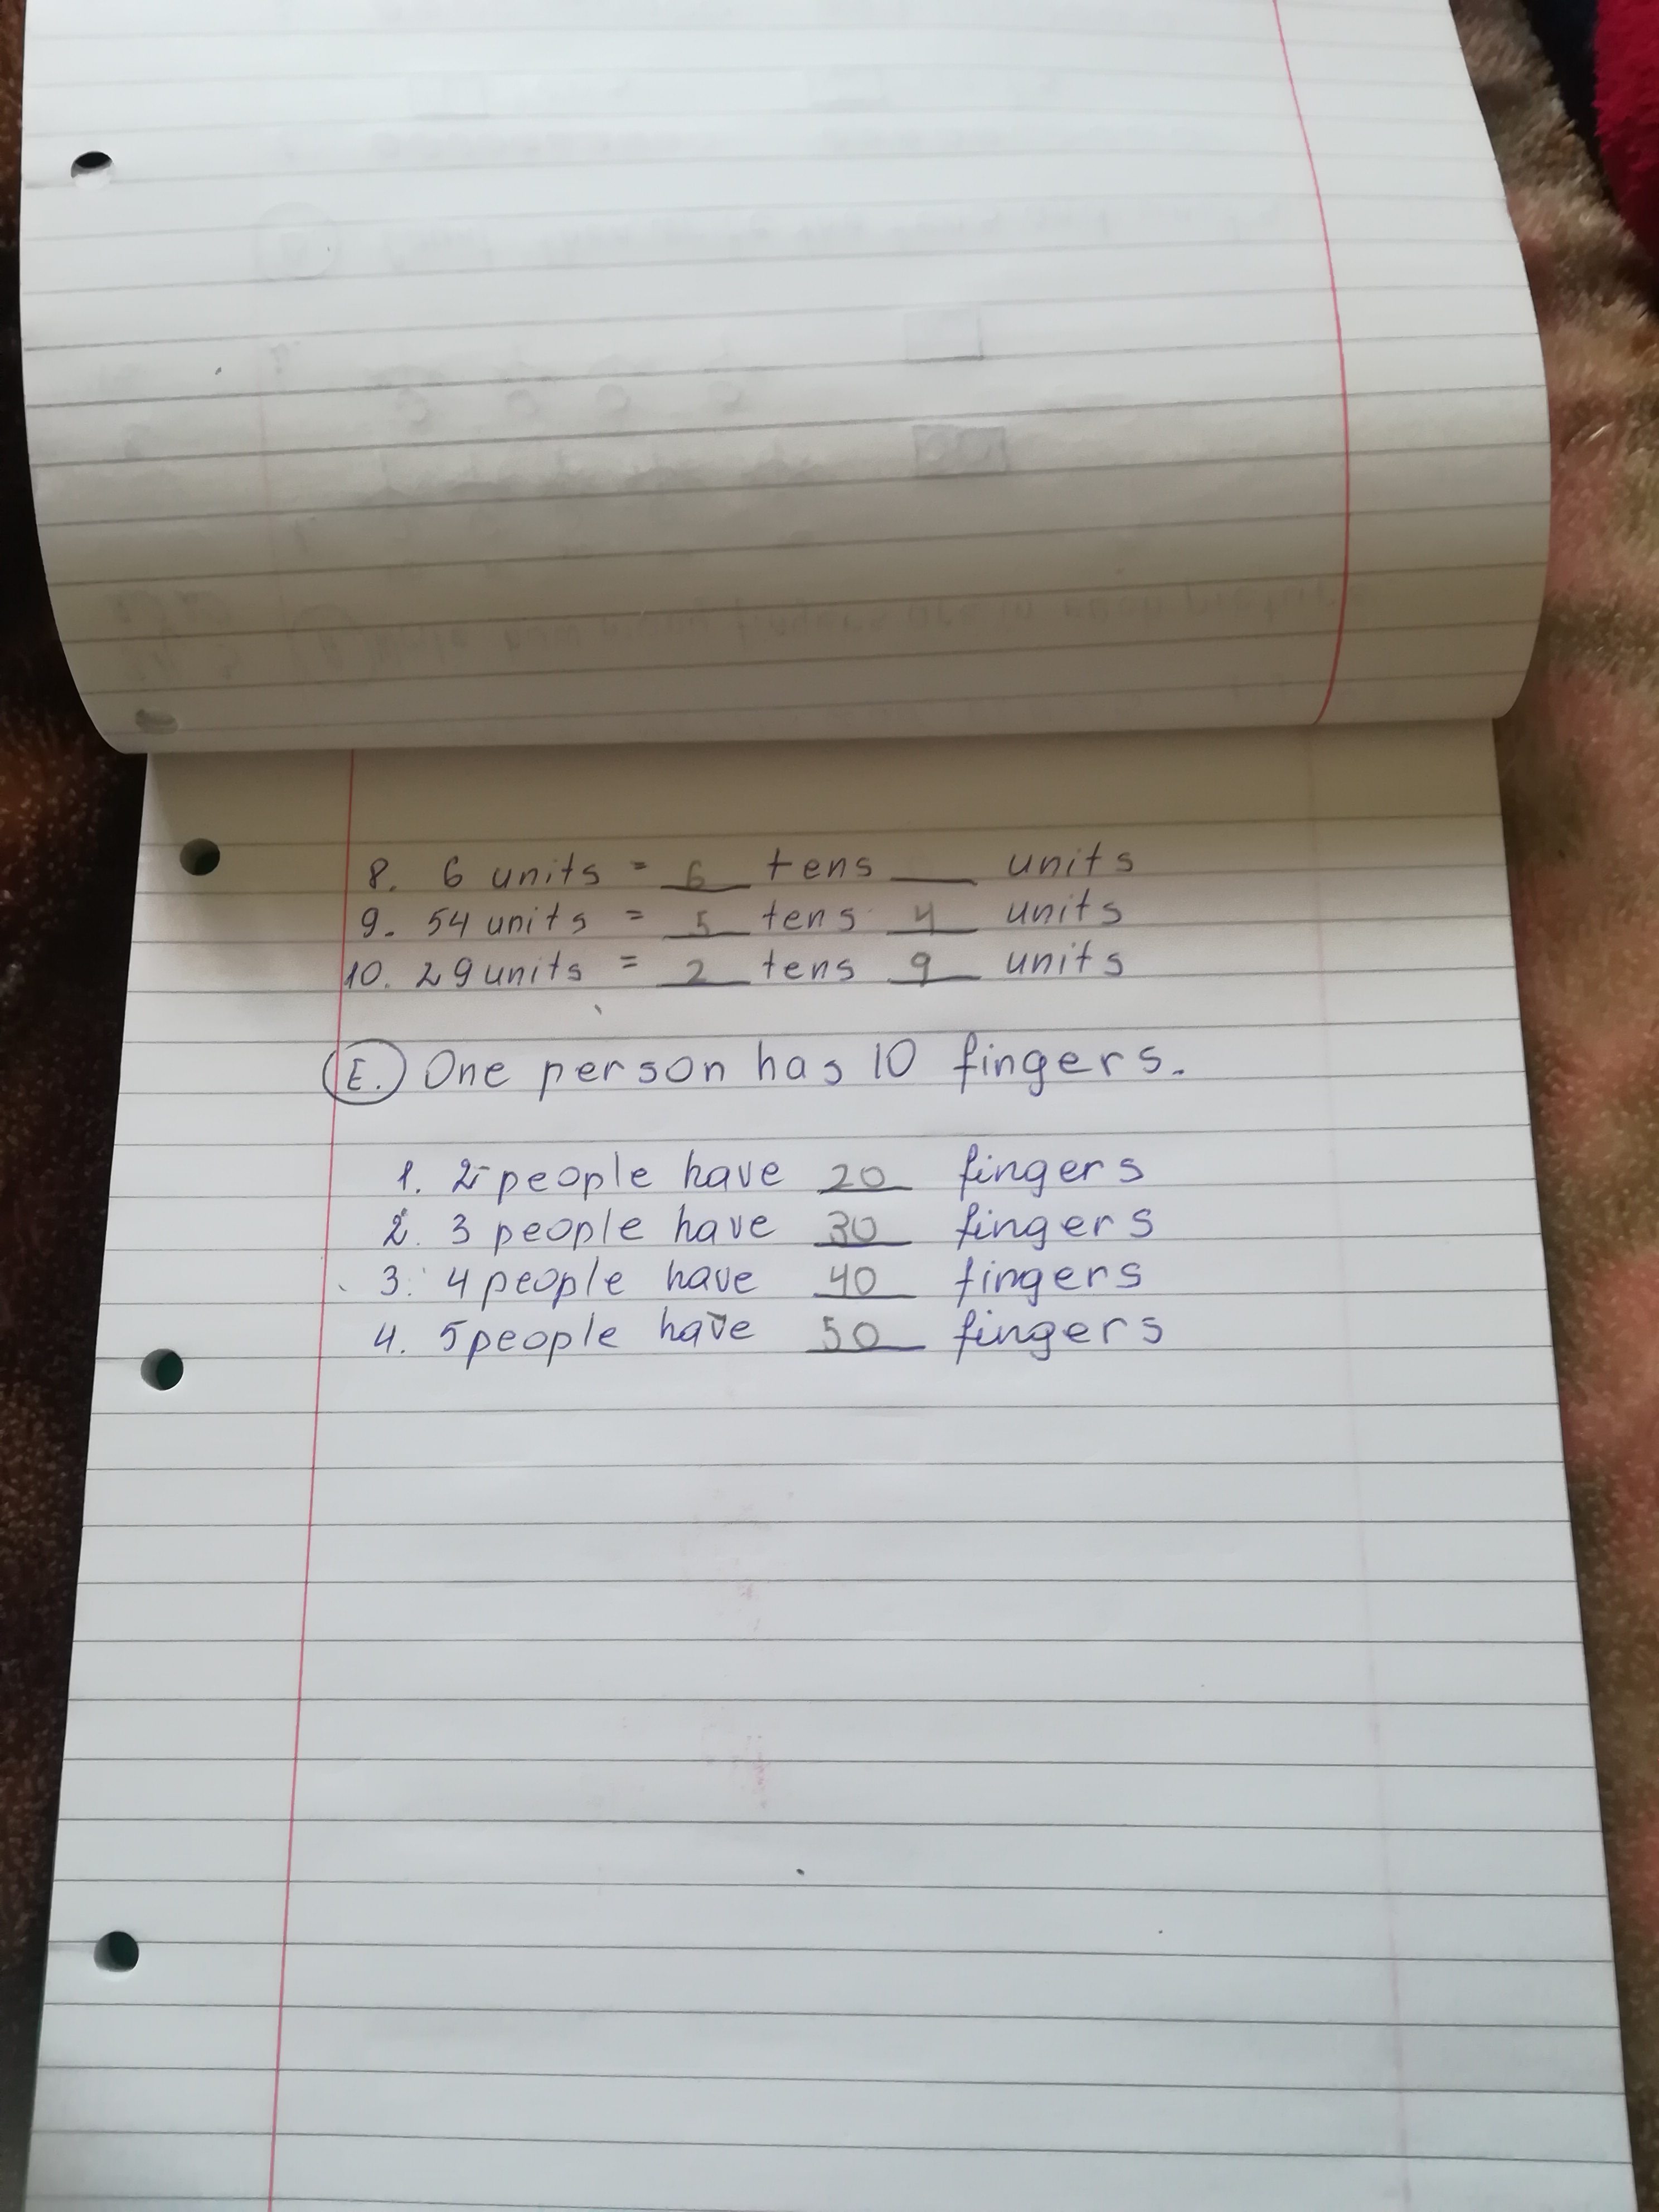 8. 6 units = 6 tens ___ units
9. 54 units = 5 tens 4 units
10. 29 units = 2 tens 9 units
E. One person has 10 fingers.
1. 2 people have 20 fingers
2. 3 people have 30 fingers
3. 4 people have 40 fingers
4. 5 people have 50 fingers